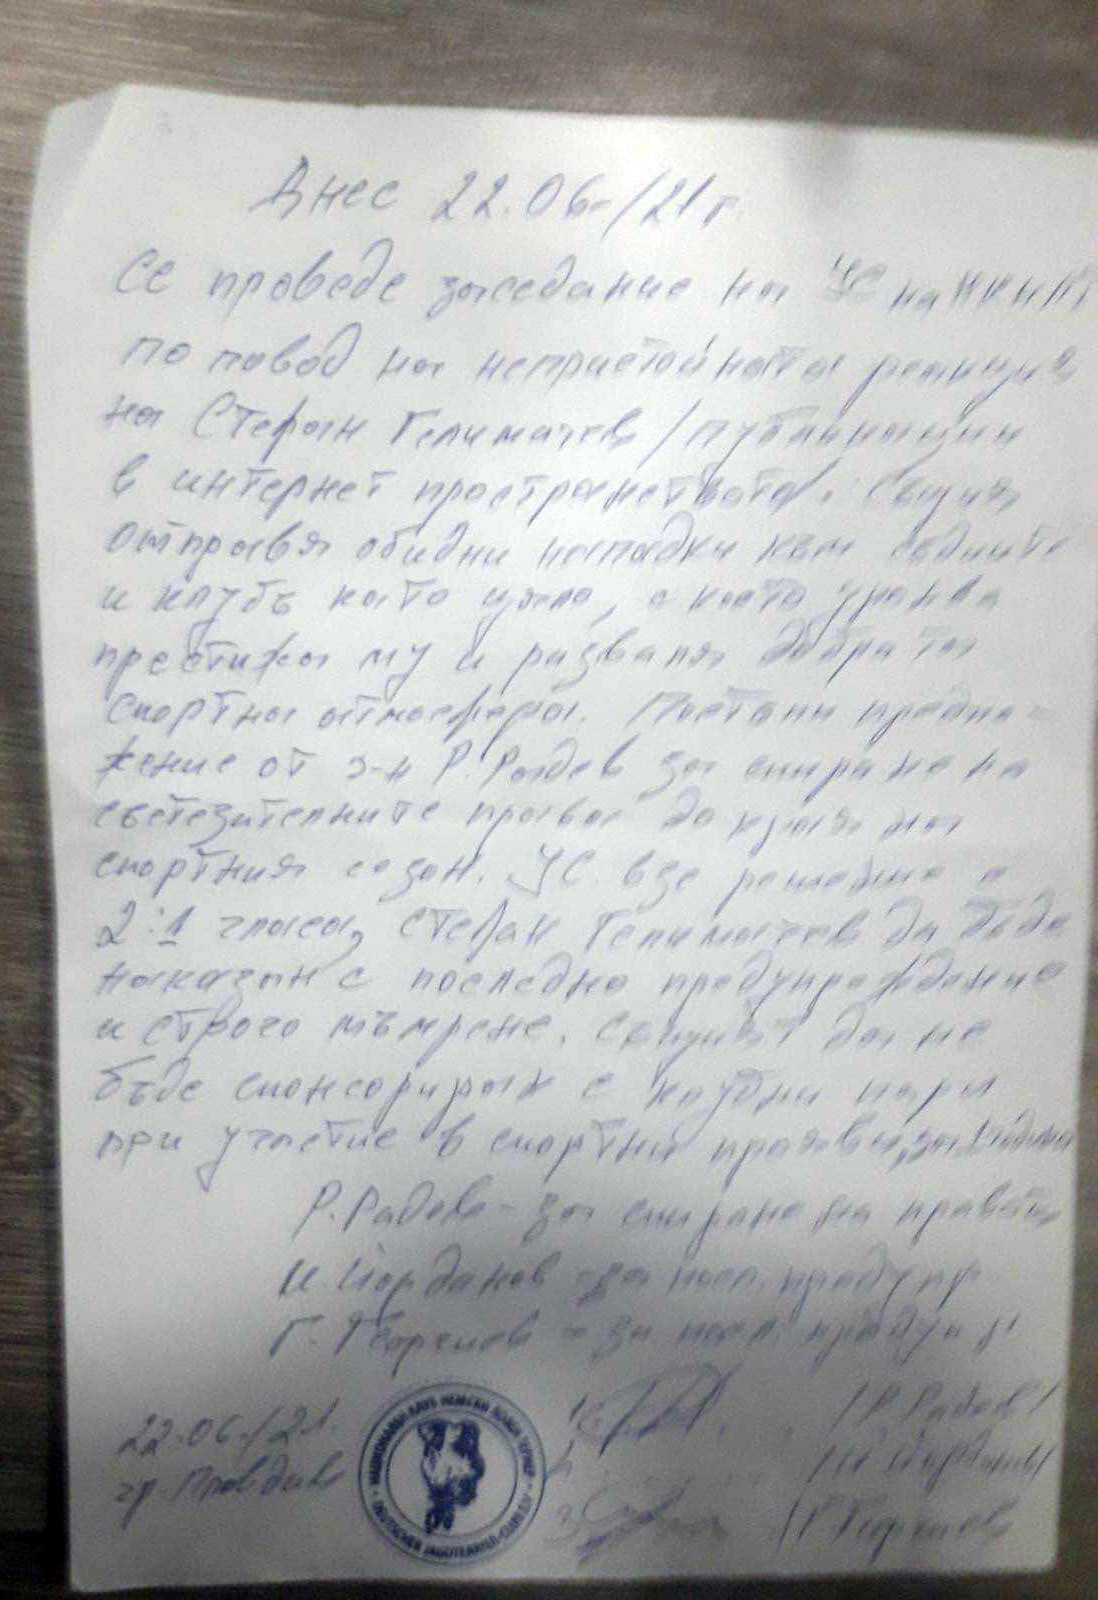 Днес 22.06./21 г.
Се проведе заседание на УС на НКНЛТ
по повод на непристойната реакция
на Стефан Гелимачев /публикации
в интернет пространството/. Същия
отправя обидни нападки към съдиите
и клубъ като цяло, с което уронва
престижа му и разваля добрата
спортна атмосфера. Постъпи предло-
жение от з-н Р. Радев за спиране на
състезателните права до края на
спортния сезон. УС взе решение с
2:1 гласа, Стефан Гелимачев да бъде
наказан с последно предупреждение
и строго мъмрене. Същият да не
бъде спонсориран с клубни пари
при участие в спортни прояви, за
Р. Радев - за спиране на права
И. Йорданов - за посл. предупр
Г. Георгиев - за посл. предупр
22.06./21.
гр. Пловдив
1. /Р. Радев/
2. /И. Йорданов/
3. /Г. Георгиев
НАЦИОНАЛЕН КЛУБ НЕМСКИ ЛОВЕН ТЕРИЕР
DEUTSCHER JAGDTERRIER-CLUB